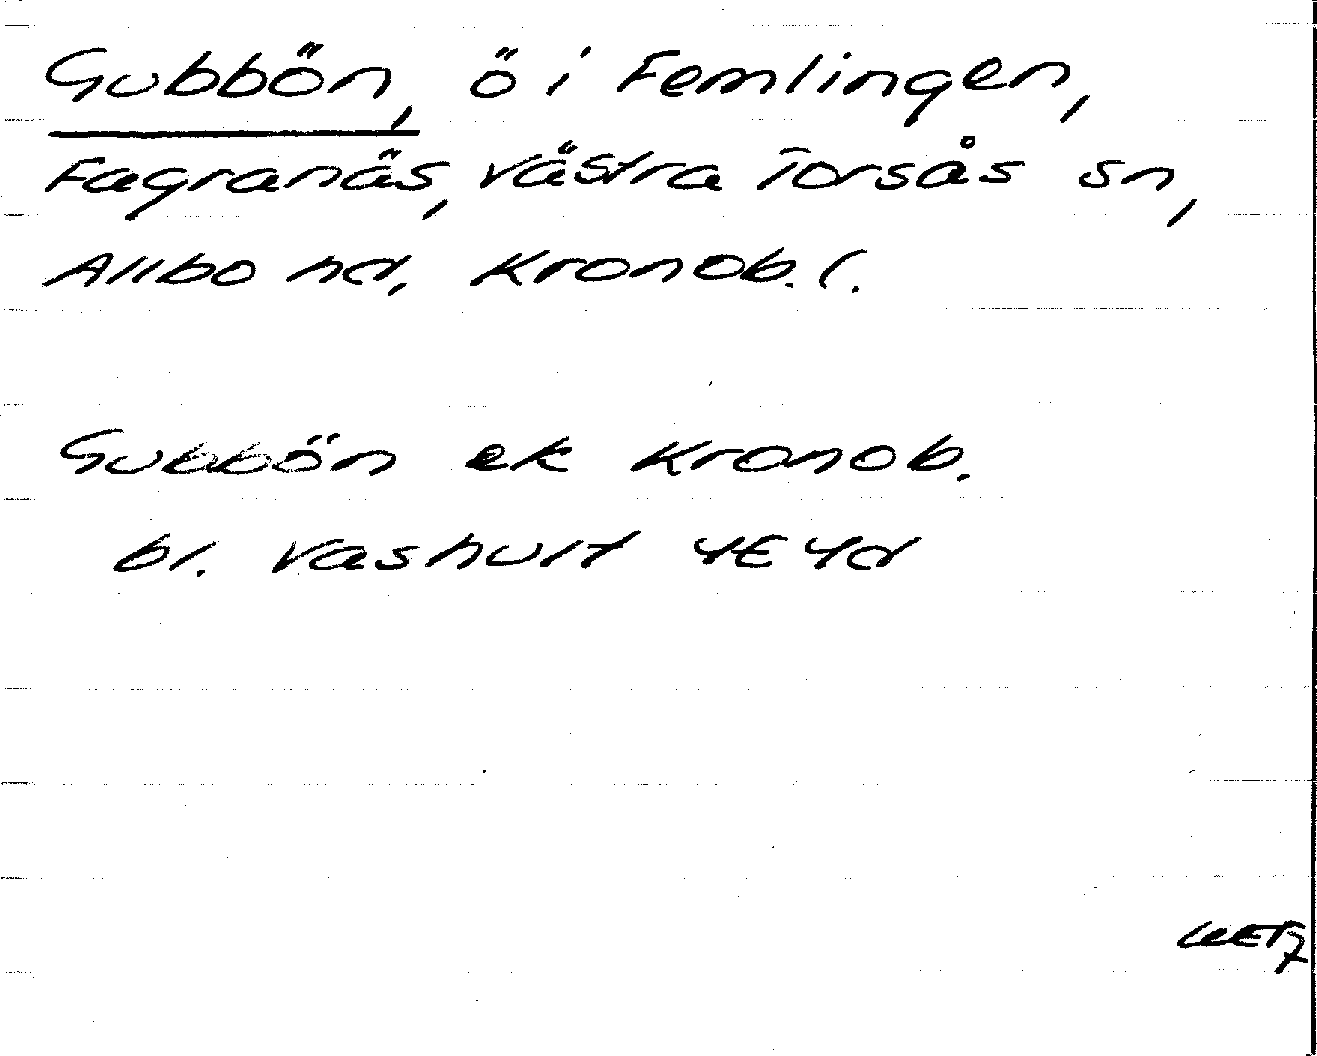 Gubbön, ö i Femlingen,
Fagranäs, Västra Torsås sn,
Allbo hd, Kronob. l.
Gubbön ek Kronob.
bl. Vashult 4E4d